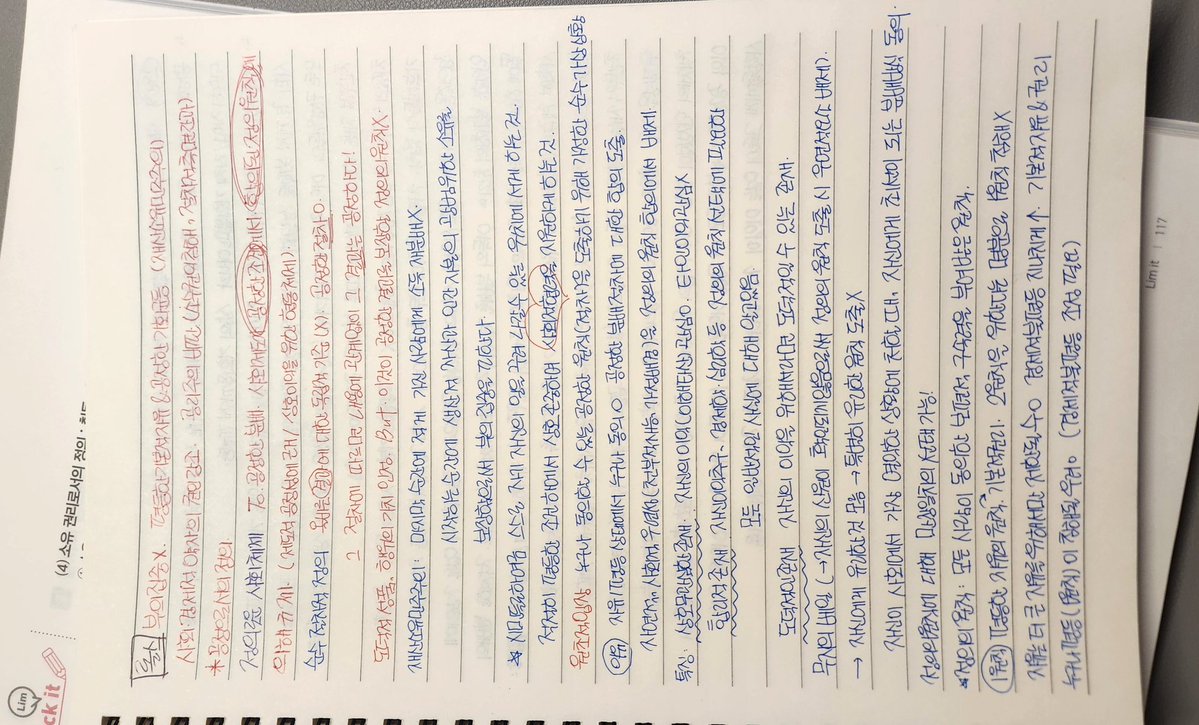 롤스 부의집중 X. 평등한 기본적 자유 & 공정한 기회균등 (재산소유민주주의)
사회 경제적 약자의 권익 강조. 공리주의 비판
*공정으로서의 정의.
정의로운 사회체제 → 공정한 분배. 사회제도가 공정한 조건에서 합의된 정의원칙에
의해 규제. (제도적 공정성에 관해 / 상호이익을 위한 협동체제)
순수 절차적 정의 올바른(결과)에 대한 독립적 기준 (X). 공정한 절차 O.
그 절차에 따르면 내용에 관계없이 그 결과는 공정하다!
도덕적 성품, 행위의 가치 인정. But 이것이 공정한 결과를 보장할 정의의 원칙X.
재산소유민주주의: 마지막 순간에 적게 가진 사람에게 소득 재분배X.
시작하는 순간에 생산적 자산과 인간 자본의 광범위한 소유를
보장함으로써 부의 집중을 피한다.
* 시민들로 하여금 스스로 자신의 일을 꾸려 나갈 수 있는 위치에 서게 하는 것.
적절히 평등한 조건하에서 상호 존중하며 사회적 협동을 지원하게 하는 것.
원초적 입장 누구나 동의할 수 있는 공정한 원칙(절차)을 도출하기 위해 가정한 순수 가상 상황
이유 자유 / 평등 상태에서 누구나 동의 O 공정한 분배 절차에 대한 합의 도출.
자연적, 사회적 우연성 (천부적 재능, 가정배경)을 정의의 원칙 합의에서 배제.
특징: 상호무관심한 존재. 자신의 이익 (이해타산) 관심 O. 타인의 이익 관심X
합리적 존재 자신의 욕구, 경제이론, 심리학 등 정의의 원칙 선택에 필요한
모든 일반적인 사실에 대해 알고있음.
도덕적인 존재 자신의 이익을 위해서라면 도덕적일 수 있는 존재.
무지의 베일 (→ 자신의 신분이 확인되지 않음으로써 정의의 원칙 도출 시 우연적 요소 배제).
→ 자신에게 유리한 것 모름 → 특별히 유리한 원칙 도출X
자신이 사회에서 가장 열악한 상황에 처할 때, 자신에게 최선이 되는 분배방식 동의.
정의의 원칙에 대해 만장일치의 선택 가능!
*정의의 원칙: 모든 사람이 동의한 보편적 구속력을 부여받은 원칙.
1원칙 평등한 자유의 원칙, 기본적 권리. 2원칙을 위한다는 명분으로 1원칙 침해X
자유는 더 큰 자유를 위해서만 제한될 수O 경제적 불평등 지나치게 ↑. 기본적 자유 & 권리
누구나 평등 (1원칙)이 침해될 우려 O (경제적 불평등 조정 필요)
(4) 소유 권리로서의 정의 ·
Lim
ck it
Lim it | 117